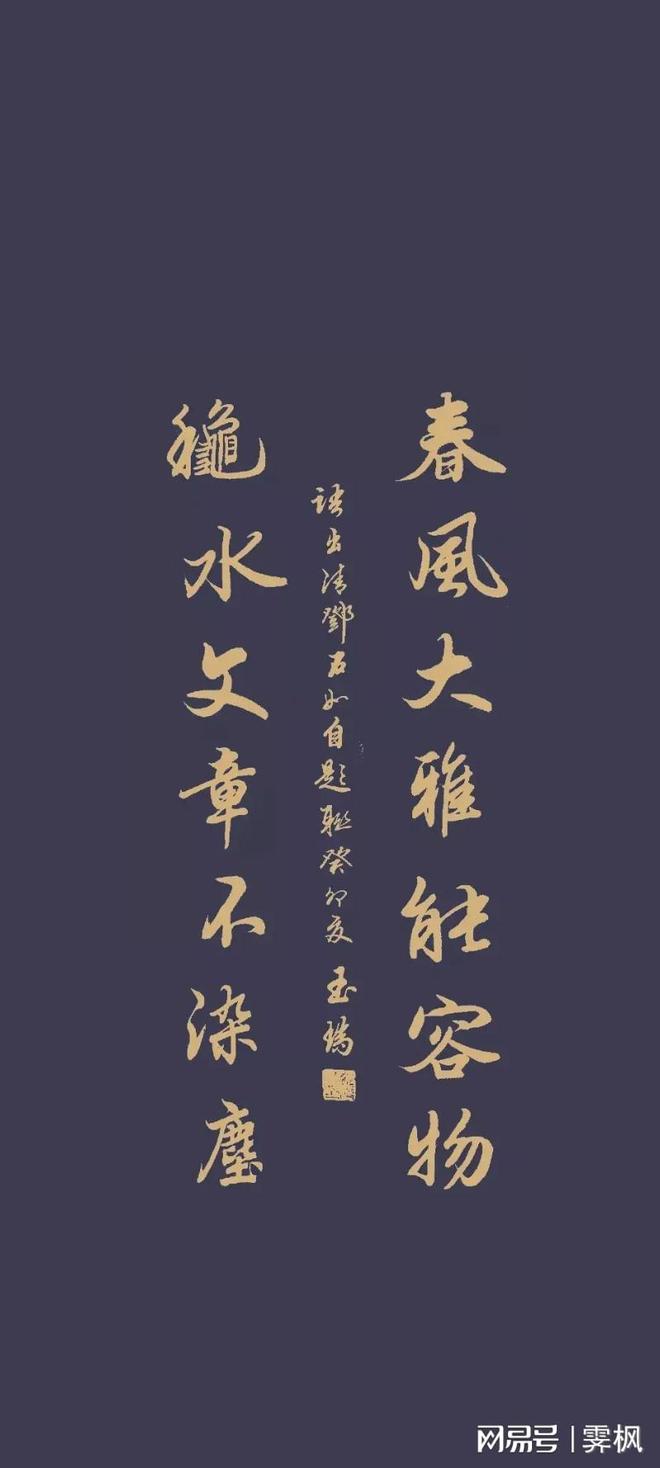 春風大雅能容物
語出清鄧石如自題聯癸卯夏 玉瑞
龝水文章不染塵
网易号 | 霁枫